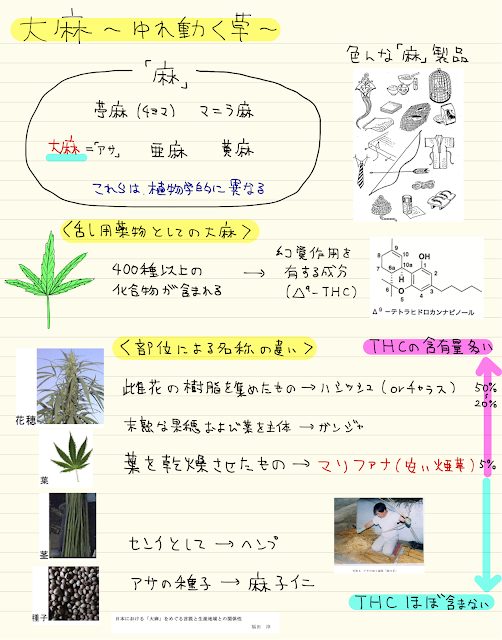 大麻 ～ゆれ動く草～
色んな「麻」製品
「麻」
苧麻 (チョマ) マニラ麻
大麻=「アサ」 亜麻 黄麻
これらは、植物学的に異なる
<乱用薬物としての大麻>
400種以上の
化合物が含まれる
→ 幻覚作用を
有する成分
(Δ⁹-THC)
9
8
10
OH
7
10a
1
2
6a
6
3
O
5
4
Δ⁹-テトラヒドロカンナビノール
<部位による名称の違い>
THCの含有量多い
花穂
雌花の樹脂を集めたもの→ハシッシュ (orチャラス)
50%
20%
未熟な果穂および葉を主体 →ガンジャ
葉
葉を乾燥させたもの → マリファナ(安い煙草) 5%
茎
センイとして → ヘンプ
種子
アサの種子 → 麻子仁
THCほぼ含まない
日本における「大麻」をめぐる言説と生産地域との関係性